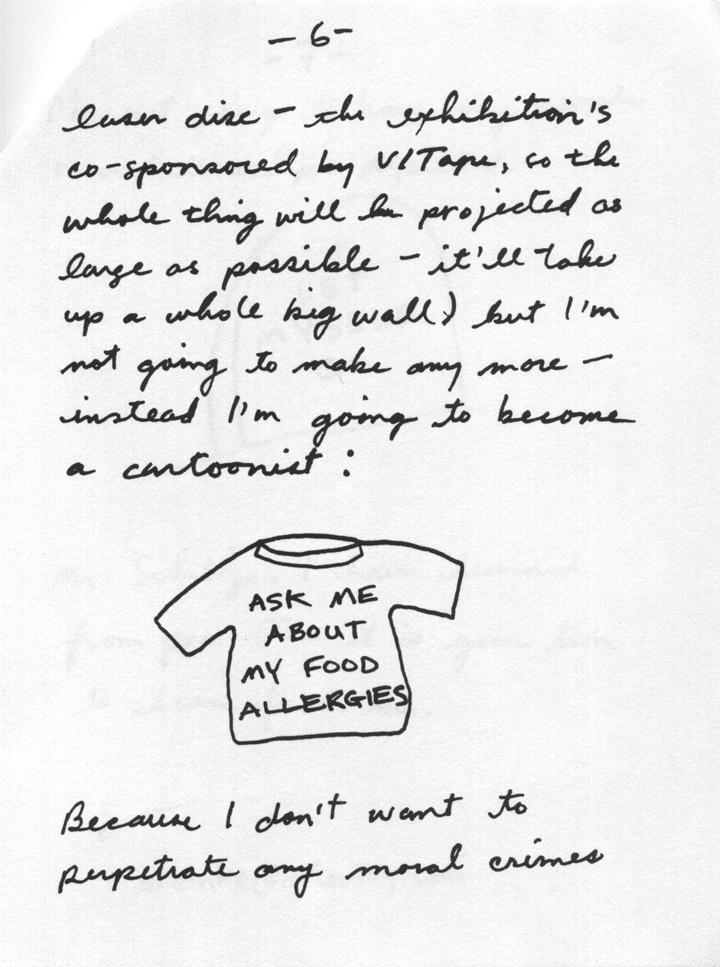 – 6 –
laser disc – the exhibition's
co-sponsored by V/Tape, so the
whole thing will be projected as
large as possible – it'll take
up a whole big wall) but I'm
not going to make any more –
instead I'm going to become
a cartoonist :
ASK ME
ABOUT
MY FOOD
ALLERGIES
Because I don't want to
perpetrate any moral crimes